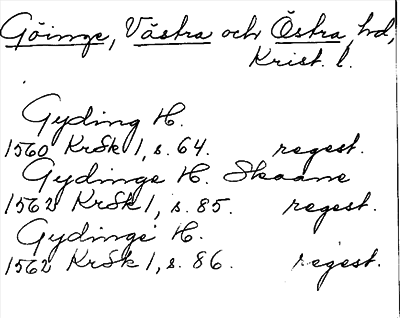 Göinge, Västra och Östra, hd,
Krist. l.
Gyding H.
1560 KrSk 1, s. 64. regest.
Gydinge H. Skaane
1562 KrSk 1, s. 85. regest.
Gydinge H.
1562 KrSk 1, s. 86. regest.